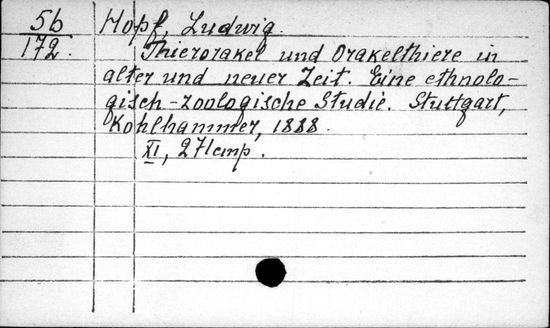 56 Hopf, Ludwig.
172. Thierorakel und Orakelthiere in
alter und neuer Zeit. Eine ethnolo-
gisch-zoologische Studie. Stuttgart,
Kohlhammer, 1888.
XI, 271 стр.